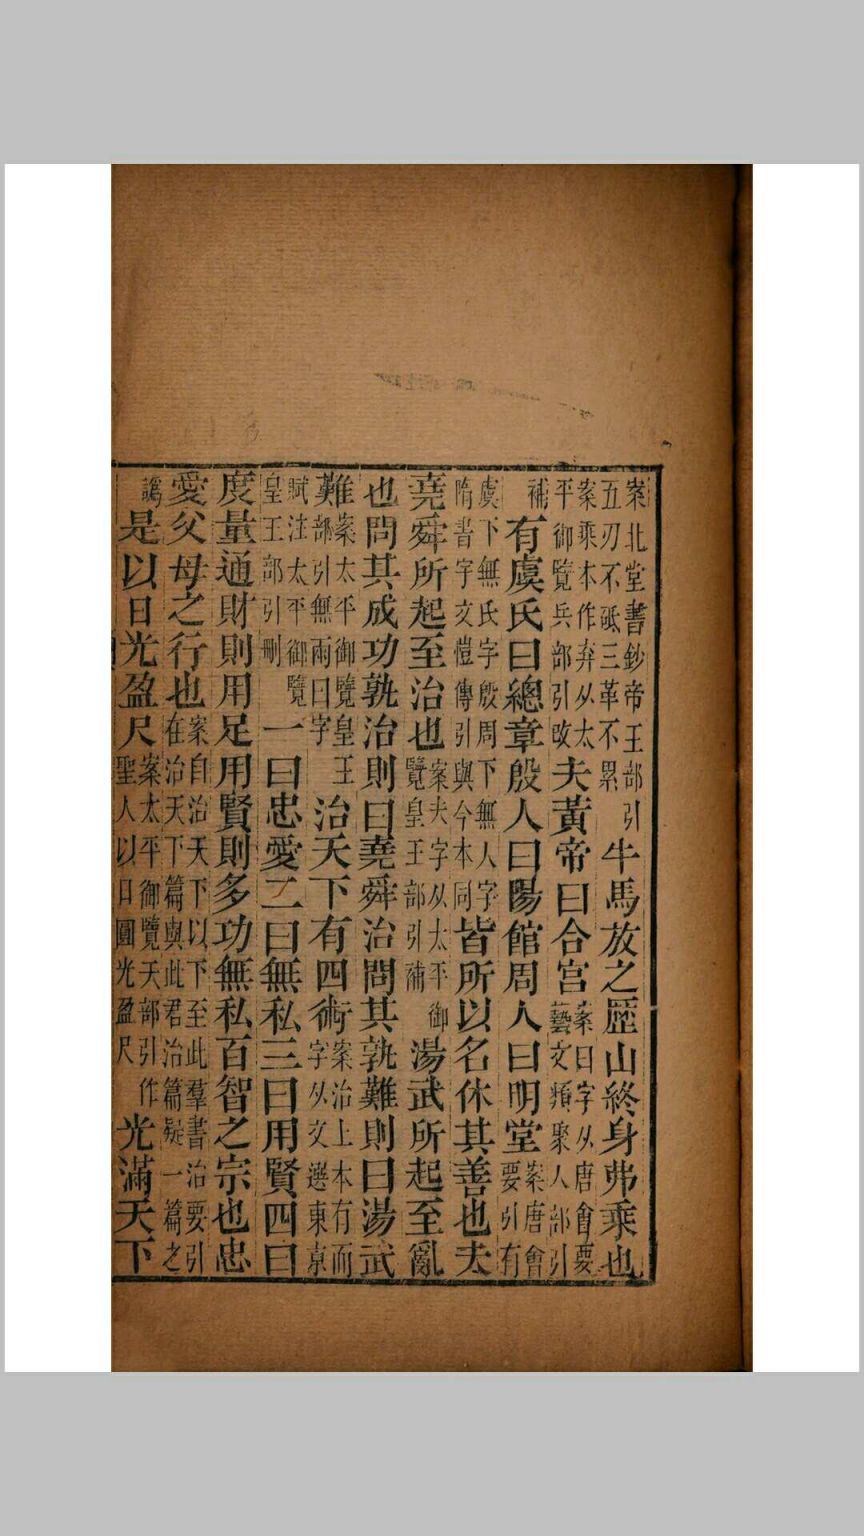 案北堂書鈔帝王部引五刃不砥三革不累牛馬放之歷山終身弗乘也
案乘本作弃从太平御覽兵部引改夫黃帝曰合宮案曰字从唐會要藝文類聚人部引
補有虞氏曰總章殷人曰陽館周人曰明堂案唐會要引有
虞下無氏字殷周下無人字隋書字文愷傳引與今本同皆所以名休其善也夫
堯舜所起至治也案夫字从太平御覽皇王部引補湯武所起至亂
也問其成功孰治則曰堯舜治問其孰難則曰湯武
難案太平御覽皇王部引無兩曰字治天下有四術案治上本有而字从文選東京
賦注太平御覽皇王部引刪一曰忠愛二曰無私三曰用賢四曰
度量通財則用足用賢則多功無私百智之宗也忠
愛父母之行也案自治天下以下至此羣書治要引在治天下篇與此君治篇疑一篇之
譌是以日光盈尺案太平御覽天部引作聖人以日圓光盈尺光滿天下